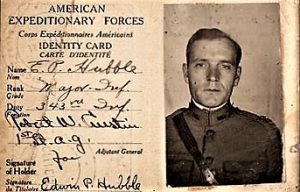 AMERICAN
EXPEDITIONARY FORCES
Corps Expéditionnaires Américains
IDENTITY CARD
CARTE D'IDENTITÉ
Name E. P. Hubble
Nom
Rank Major - Inf.
Grade
Duty 343rd Inf.
Robert W.
1st
Adjutant General
Signature
of Holder
Signature
du Titulaire Edwin P. Hubble